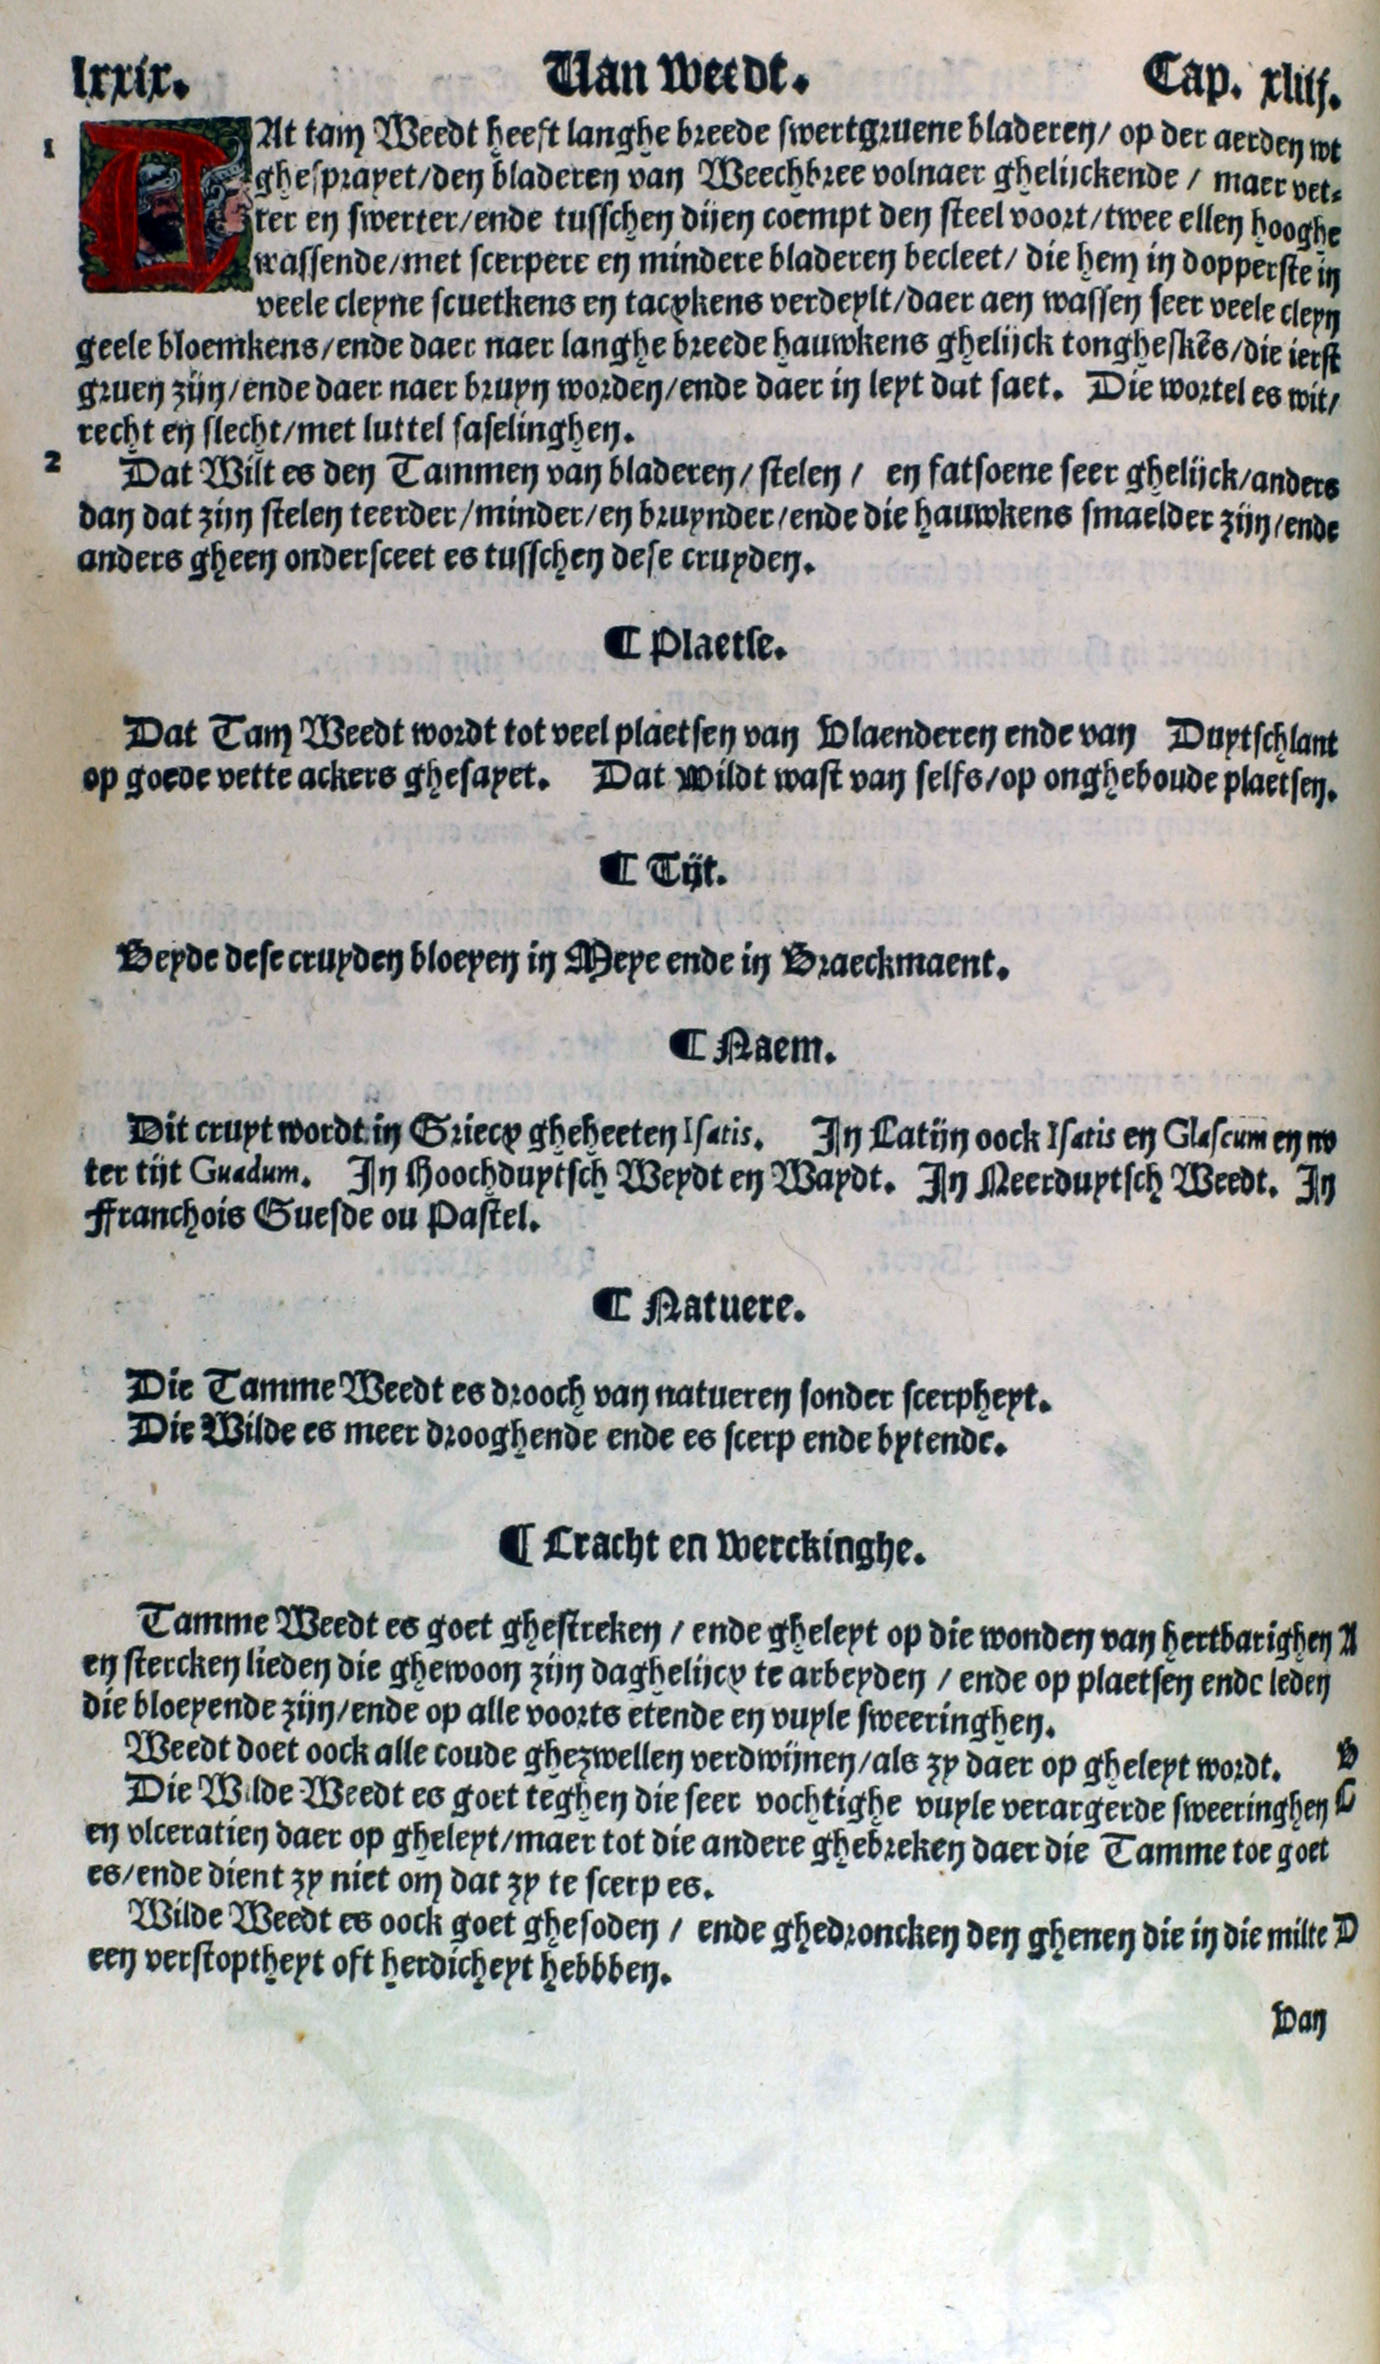 lxxix. Van weedt. Cap. xliiij.
1 DAt tam Weedt heeft langhe breede swertgruene bladeren/ op der aerden wt
ghesprayet/den bladeren van Weechbree volnaer ghelijckende / maer vet-
ter en swerter/ende tusschen dijen coempt den steel voort/twee ellen hooghe
wassende/met scerpere en mindere bladeren becleet/ die hem in dopperste in
veele cleyne scuetkens en tacxkens verdeylt/daer aen wassen seer veele cleyn
geele bloemkens/ende daer naer langhe breede hauwkens ghelijck tongheskēs/die ierst
gruen zijn/ende daer naer bruyn worden/ende daer in leyt dat saet. Die wortel es wit/
recht en slecht/met luttel faselinghen.
2 Dat Wilt es den Tammen van bladeren/ stelen / en fatsoene seer ghelijck/anders
dan dat zijn stelen teerder/minder/en bruynder/ende die hauwkens smaelder zijn/ende
anders gheen ondersceet es tusschen dese cruyden.
¶ Plaetse.
Dat Tam Weedt wordt tot veel plaetsen van Vlaenderen ende van Duytschlant
op goede vette ackers ghesayet. Dat wildt wast van selfs/op ongheboude plaetsen.
¶ Tijt.
Beyde dese cruyden bloeyen in Meye ende in Braeckmaent.
¶ Naem.
Dit cruyt wordt in Griecx gheheeten Isatis. In Latijn oock Isatis en Glascum en no
ter tijt Guadum. In Hoochduytsch Weydt en Waydt. In Neerduytsch Weedt. In
Franchois Guesde ou Pastel.
¶ Natuere.
Die Tamme Weedt es drooch van natueren sonder scerpheyt.
Die Wilde es meer drooghende ende es scerp ende bytende.
¶ Cracht en werckinghe.
Tamme Weedt es goet ghestreken / ende gheleyt op die wonden van hertbarighen A
en stercken lieden die ghewoon zijn daghelijcx te arbeyden / ende op plaetsen ende leden
die bloeyende zijn/ende op alle voorts etende en vuyle sweeringhen.
Weedt doet oock alle coude ghezwellen verdwijnen/als zy daer op gheleyt wordt. B
Die Wilde Weedt es goet teghen die seer vochtighe vuyle verargerde sweeringhen C
en vlceratien daer op gheleyt/maer tot die andere ghebreken daer die Tamme toe goet
es/ende dient zy niet om dat zy te scerp es.
Wilde Weedt es oock goet ghesoden / ende ghedroncken den ghenen die in die milte D
een verstoptheyt oft herdicheyt hebbben.
Van